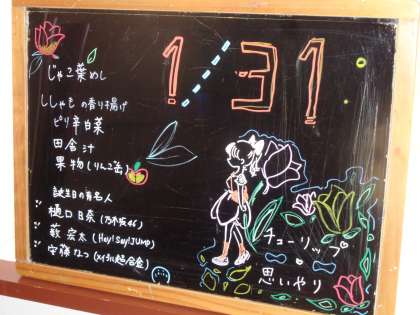 1/31
じゃこ葉めし
ししゃもの香り揚げ
ピリ辛白菜
田舎汁
果物(りんご缶)
誕生日の有名人
樋口日奈(乃木坂46)
薮宏太(Hey!Say!JUMP)
安藤なつ(メイプル超合金)
チューリップ
思いやり